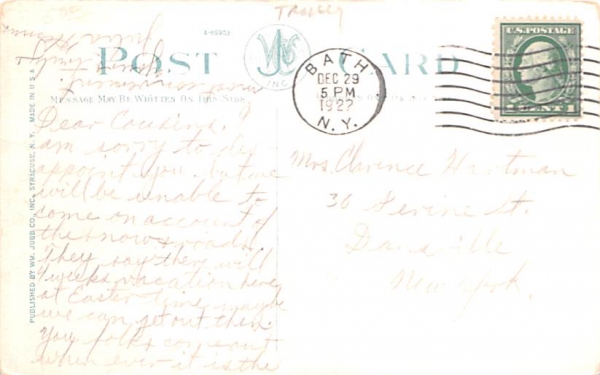 TROLLEY
A-89903
POST CARD
WJ
INC.
MESSAGE MAY BE WRITTEN ON THIS SIDE
BATH
DEC 29
5 PM
1922
N.Y.
U.S. POSTAGE
1 CENT 1
PUBLISHED BY WM. JUBB CO., INC., SYRACUSE, N. Y. MADE IN U. S. A.
Dear Cousins,
I am sorry to dis
appoint you, but we
will be unable to
come on account of
the snow & roads.
They say there will
weeks vacation here
at Easter time maybe
we can get out then.
You folks come out
when ever it is the
most convenient
Mrs. Clarence Hartman
36 Perine St.
Dansville
New York.